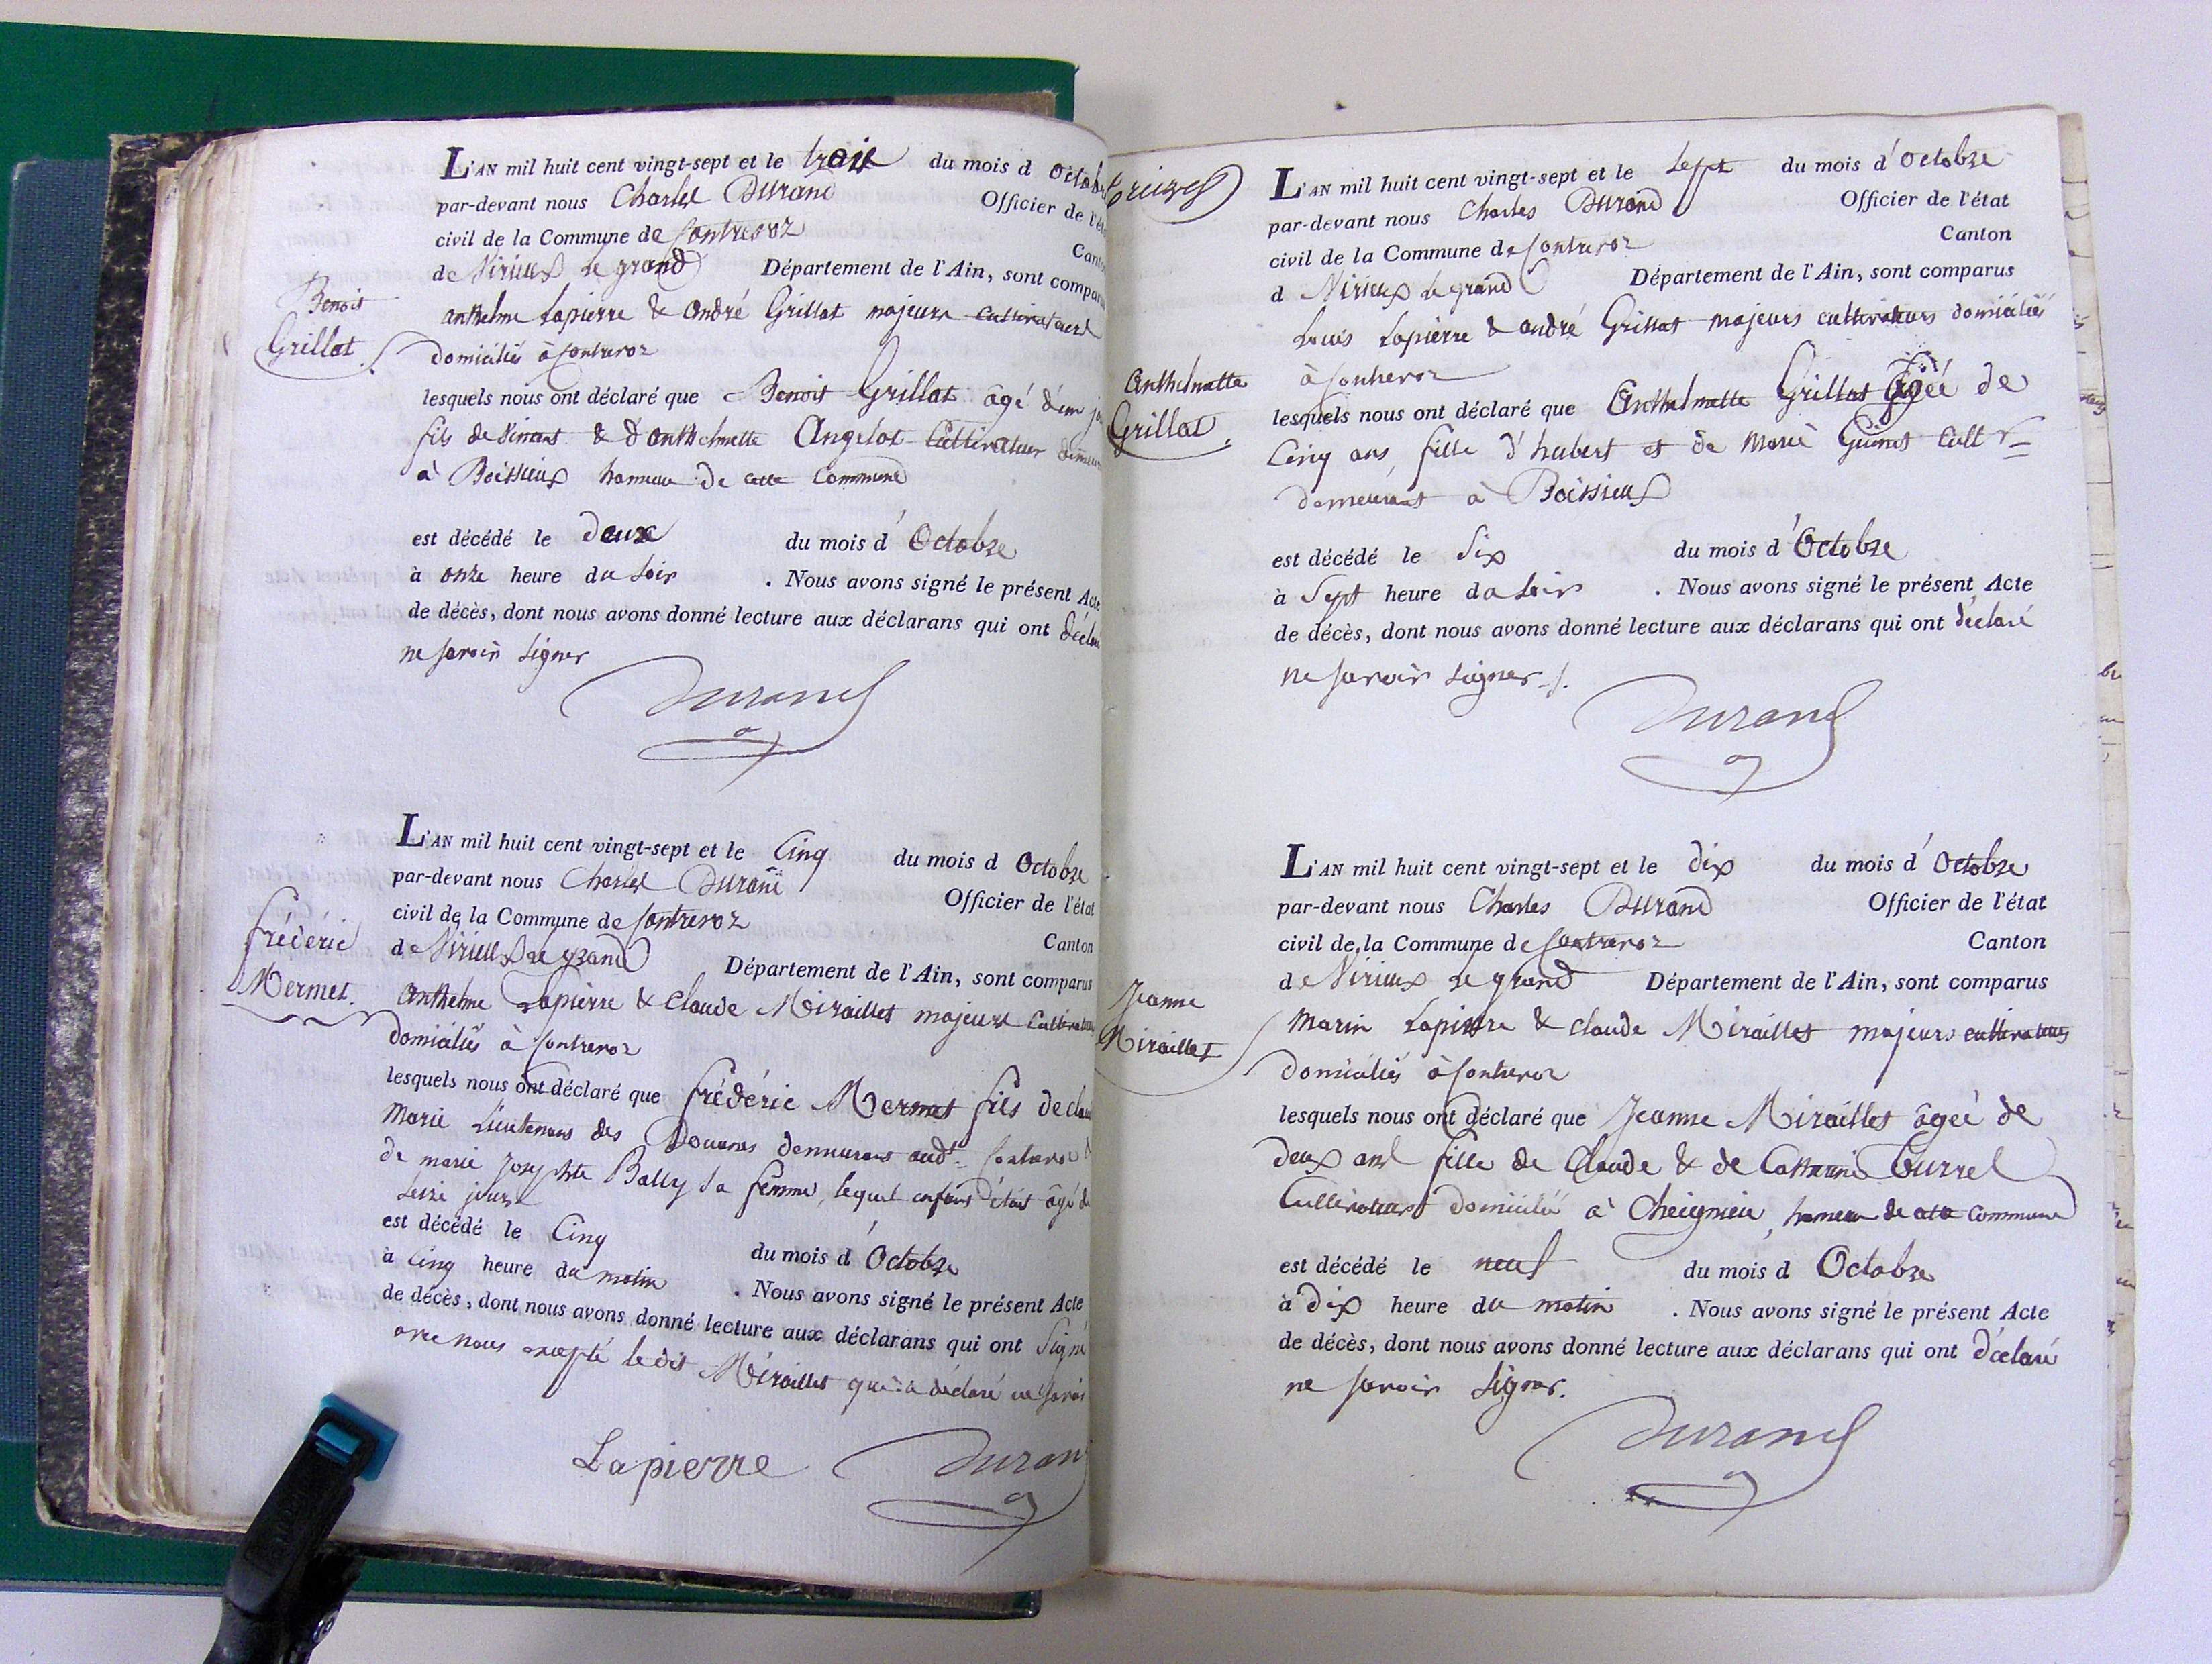 L'AN mil huit cent vingt-sept et le trois du mois d octobre
par-devant nous Charles Durand Officier de l'état
civil de la Commune de Contrevoz Canton
de Virieux le grand Département de l'Ain, sont comparus
anthelme Lapierre & andré Grillat majeurs cultivateurs
domiciliés à Contrevoz
Benoit
Grillat
lesquels nous ont déclaré que Benoit Grillat âgé d'un jour
fils de & d'anthelmette Angelot Cultivateur
à Boissieux hameau de cette Commune
est décédé le deux du mois d' Octobre
à onze heure du soir . Nous avons signé le présent Acte
de décès, dont nous avons donné lecture aux déclarans qui ont déclaré
ne savoir signer
Durand
L'AN mil huit cent vingt-sept et le Cinq du mois d Octobre
par-devant nous Charles Durand Officier de l'état
civil de la Commune de Contrevoz Canton
de Virieux le grand Département de l'Ain, sont comparus
Anthelme Lapierre & Claude Miraillet majeurs Cultivateurs
domiciliés à Contrevoz
frédéric
Mermet.
lesquels nous ont déclaré que frédéric Mermet fils de
Marie Lieutenant des Douanes demeurant audt Contrevoz
de marie Josephte Bally sa femme, lequel enfant était âgé de
seize jours
est décédé le Cinq du mois d' Octobre
à Cinq heure du matin . Nous avons signé le présent Acte
de décès, dont nous avons donné lecture aux déclarans qui ont Signé
avec nous excepté ledit Miraillet qui a déclaré ne savoir
Lapierre Durand
L'AN mil huit cent vingt-sept et le Sept du mois d' Octobre
par-devant nous Charles Durand Officier de l'état
civil de la Commune de Contrevoz Canton
d Virieux le grand Département de l'Ain, sont comparus
Louis Lapierre & andré Grillat majeurs cultivateurs domiciliés
à Contrevoz
Anthelmette
Grillat
lesquels nous ont déclaré que Anthelmette Grillat âgée de
Cinq ans, fille d'hubert et de Marie Guinet Cultr
demeurant à Boissieux
est décédé le Six du mois d' Octobre
à Sept heure du soir . Nous avons signé le présent Acte
de décès, dont nous avons donné lecture aux déclarans qui ont déclaré
ne savoir signer
Durand
L'AN mil huit cent vingt-sept et le dix du mois d' Octobre
par-devant nous Charles Durand Officier de l'état
civil de la Commune de Contrevoz Canton
de Virieux le grand Département de l'Ain, sont comparus
Marin Lapierre & claude Miraillet majeurs cultivateurs
domiciliés à Contrevoz
Jeanne
Miraillet
lesquels nous ont déclaré que Jeanne Miraillet âgée de
deux ans fille de Claude & de Catherine Currel
Cultivateurs domicilié à Cheignieu, hameau de cette Commune
est décédé le neuf du mois d Octobre
à dix heure du matin . Nous avons signé le présent Acte
de décès, dont nous avons donné lecture aux déclarans qui ont déclaré
ne savoir signer.
Durand